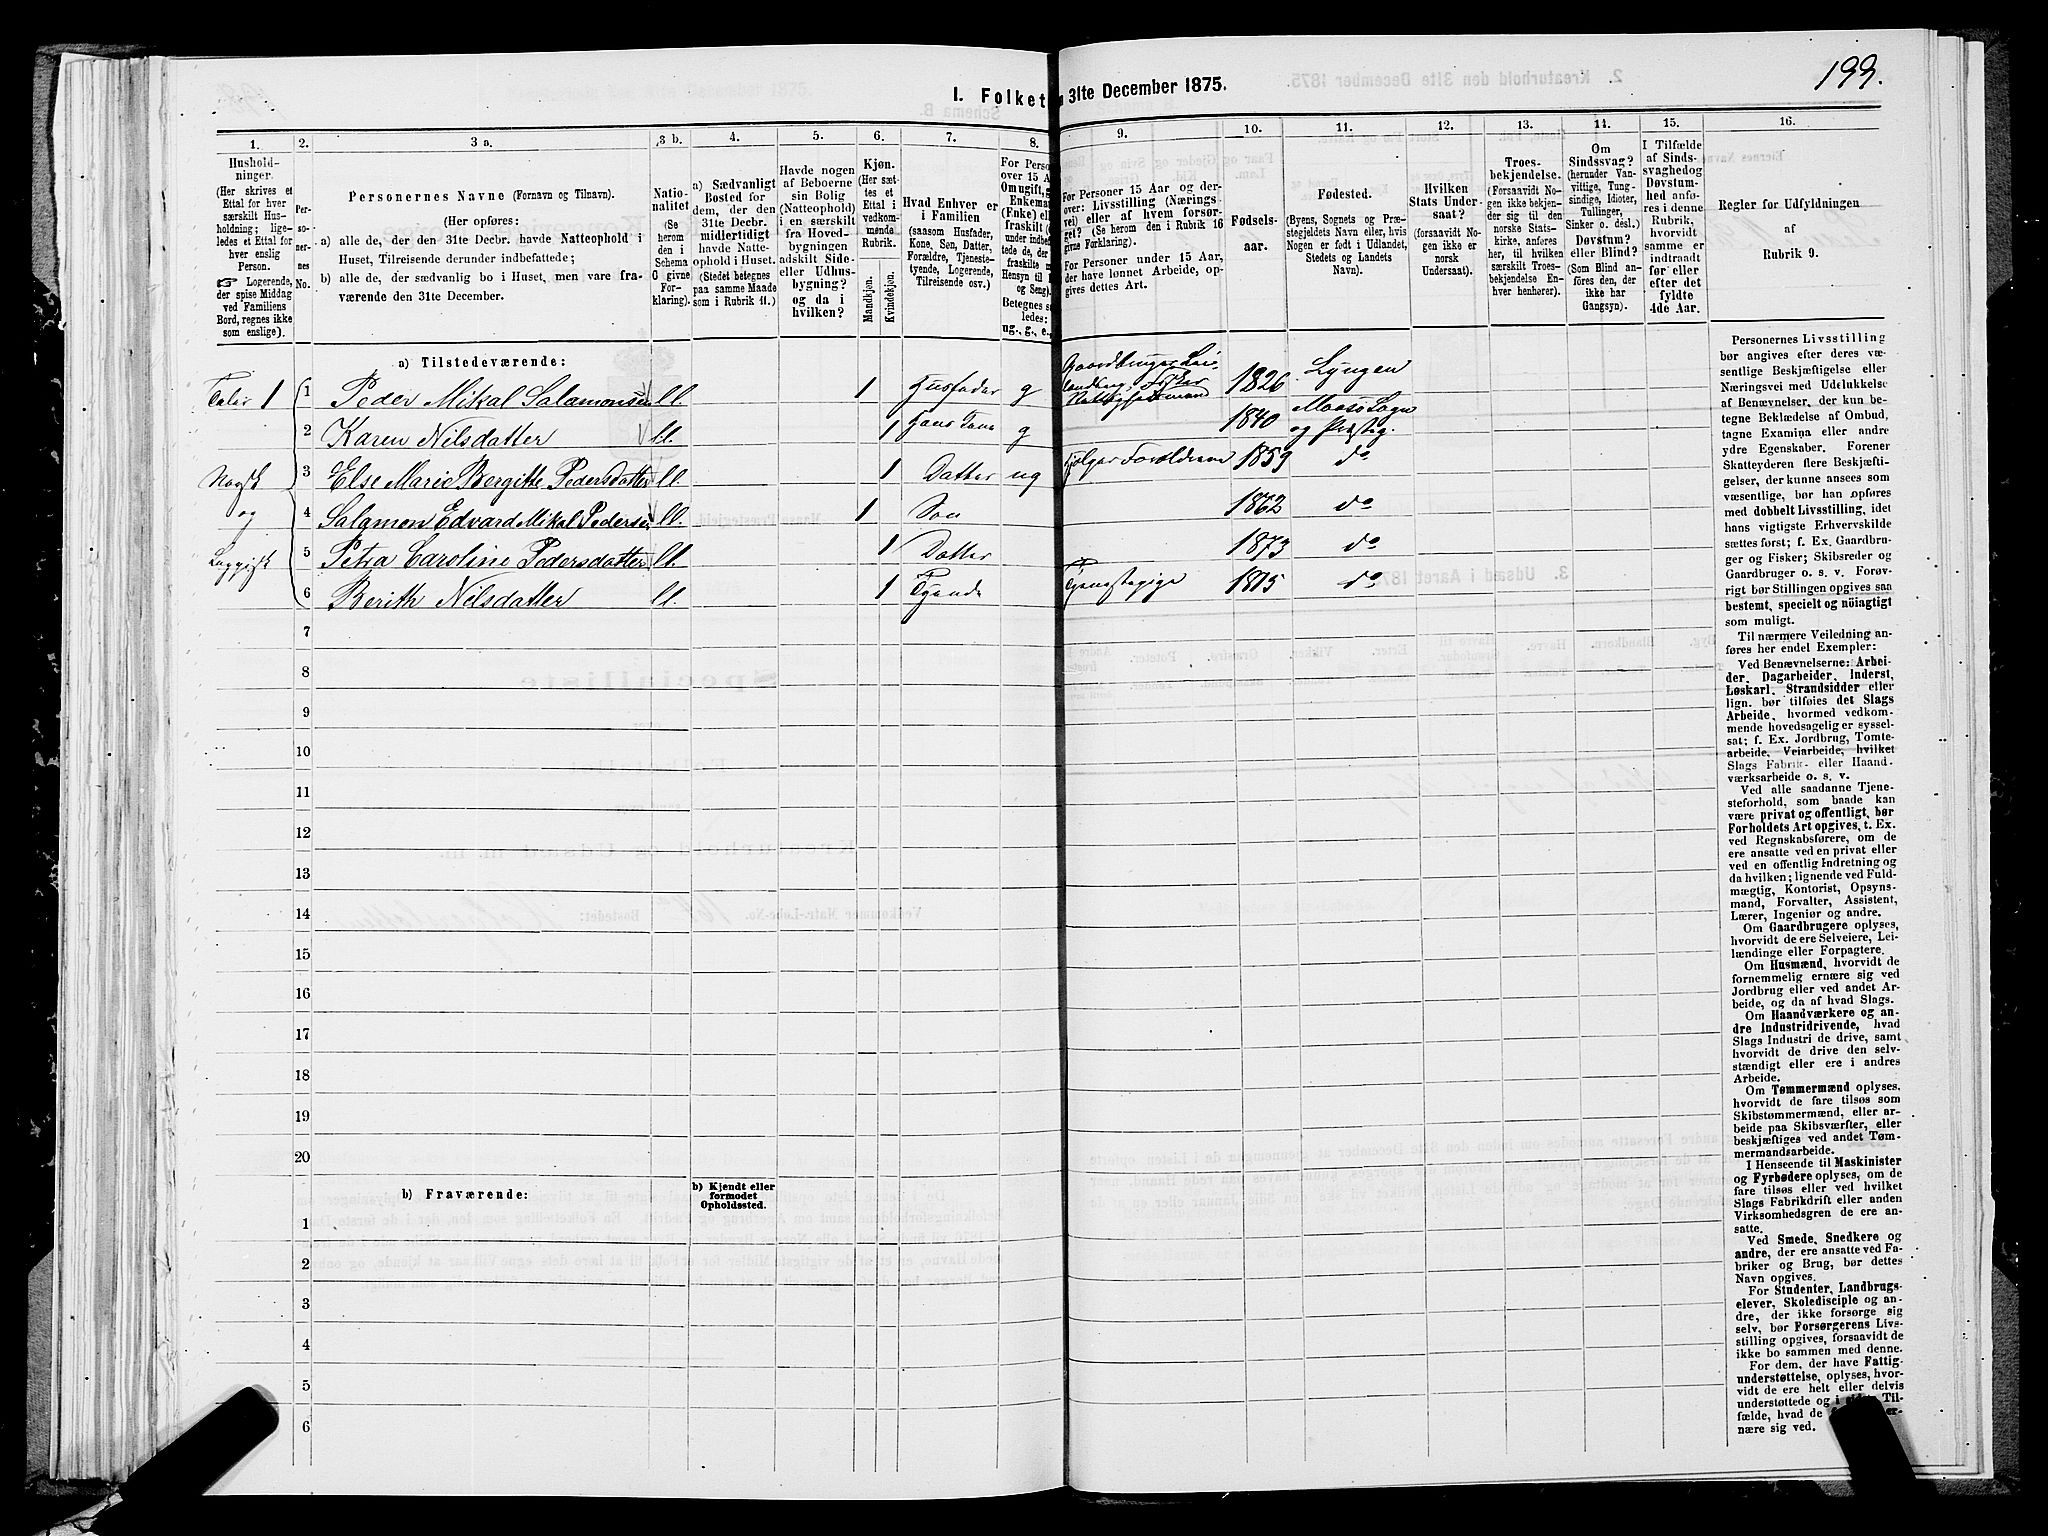 199.
I. Folket n 31te December 1875.
1.
2.
3 a.
3 b.
4.
5.
6.
7.
8.
9.
10.
11.
12.
13.
14.
15.
16.
Hushold-
ninger.
(Her skrives et
Ettal for hver
særskilt Hus-
holdning; lige-
ledes et Ettal for
hver enslig
Person.
☞ Logerende,
der spise Middag
ved Familiens
Bord, regnes ikke
som enslige).
Per-
so-
ner-
nes
No.
Personernes Navne (Fornavn og Tilnavn).
(Her opføres:
a) alle de, der den 31te Decbr. havde Natteophold i
Huset, Tilreisende derunder indbefattede;
b) alle de, der sædvanlig bo i Huset, men vare fra-
værende den 31te December.
Natio-
nalitet
(Se
herom
den i
Schema
C givne
For-
klaring).
a) Sædvanligt
Bosted for
dem, der den
31te Decbr.
midlertidigt
havde Natte-
ophold i Huset.
(Stedet betegnes
paa samme Maade
som i Rubrik 11.)
Havde nogen
af Beboerne
sin Bolig
(Natteophold)
i en særskilt
fra Hoved-
bygningen
adskilt Side-
eller Udhus-
bygning?
og da i
hvilken?
Kjøn.
(Her sæt-
tes et
Ettal i
vedkom-
mende
Rubrik.
Mandkjøn.
Kvindekjøn.
Hvad Enhver er
i Familien
(saasom Husfader,
Kone, Søn, Datter,
Forældre, Tjeneste-
tyende, Logerende,
Tilreisende osv.)
For Perso
over 15 A
Om ugift, g
Enkema
(Enke) elle
fraskilt
under indbe
tede de, der
fraskilte m
Hensyn til B
og Seng).
Betegnes s
ledes:
ug., g., e.,
For Personer 15 Aar og der-
over: Livsstilling (Nærings-
vei) eller af hvem forsør-
get? (Se herom den i Rubrik 16
givne Forklaring).
For Personer under 15 Aar,
der have lønnet Arbeide, op-
gives dettes Art.
Fødsels-
aar.
Fødested.
(Byens, Sognets og Præ-
stegjeldets Navn eller, hvis
Nogen er født i Udlandet,
Stedets og Landets
Navn).
Hvilken
Stats Under-
saat?
(opgives for-
saavidt No-
gen ikke er
norsk
Undersaat).
Troes-
bekjendelse.
(Forsaavidt No-
gen ikke bekjen-
der sig til den
norske Stats-
kirke, anføres
her, til hvilken
særskilt Troes-
bekjendelse En-
hver henhører).
Om
Sindssvag?
(herunder Van-
vittige, Tung-
sindige, Idioter,
Tullinger,
Sinker o. desl.)
Døvstum?
eller Blind?
(Som Blind an-
føres den, der
ikke har
Gangsyn).
I Tilfælde
af Sinds-
svaghed og
Døvstum-
hed anfø-
res i denne
Rubrik,
hvorvidt
samme er
indtraadt
før eller
efter det
fyldte
4de Aar.
Regler for Udfyldningen
af
Rubrik 9.
a) Tilstedeværende:
Taler 1
1 Peder Mikal Salamonsen ll. 1 Husfader g Gaardbruger Lei- 1826 Lyngen
2 Karen Nilsdatter ll. 1 Hans Kone g 1840 Maasø Sogn
og Præsteg.
Norsk
3 Else Marie Bergitte Pedersdatter ll. 1 Datter ug hjælper Forældrene 1859 do
og
4 Salamon Edvard Mikal Pedersen ll. 1 Søn 1862 do
Lappisk
5 Petra Caroline Pedersdatter ll. 1 Datter 1873 do
6 Berith Nilsdatter ll. 1 Tyende Tjenestepige do
7
8
9
10
11
12
13
14
15
16
17
18
19
20
b) Fraværende:
b) Kjendt eller
formodet
Opholdssted.
1
2
3
4
5
6
Personernes Livsstilling
bør angives efter deres væ-
sentlige Beskjæftigelse eller
Næringsvei med Udelukkelse
af Benævnelser, der kun be-
tegne Beklædelse af Ombud,
tagne Examina eller andre
ydre Egenskaber. Forener
Skatteyderen flere Beskjæfti-
gelser, der kunne ansees som
væsentlige, bør han opføres
med dobbelt Livsstilling, idet
hans vigtigste Erhvervskilde
sættes først; f. Ex. Gaardbru-
ger og Fisker; Skibsreder og
Gaardbruger o. s. v. Forøv-
rigt bør Stillingen opgives saa
bestemt, specielt og nöiagtigt
som muligt.
Til nærmere Veiledning an-
føres her endel Exempler:
Ved Benævnelserne: Arbei-
der, Dagarbeider, Inderst,
Løskarl, Strandsidder eller
lign. bør tilføies det Slags
Arbeide, hvormed vedkom-
mende hovedsagelig er syssel-
sat; f. Ex. Jordbrug, Tomte-
arbeide, Veiarbeide, hvilket
Slags Fabrik- eller Haand-
værksarbeide o. s. v.
Ved alle saadanne Tjene-
steforhold, som baade kan
være privat og offentligt, bør
Forholdets Art opgives, t. Ex.
ved Regnskabsførere, om de
ere ansatte ved en privat eller
ved en offentlig Indretning og
da hvilken; lignende ved Fuld-
mægtig, Kontorist, Opsyns-
mand, Forvalter, Assistent,
Lærer, Ingeniør og andre.
Om Gaardbrugere oplyses,
hvorvidt de ere Selveiere, Lei-
lændinge eller Forpagtere.
Om Husmænd, hvorvidt de
fornemmelig ernære sig ved
Jordbrug eller ved andet Ar-
beide, og da af hvad Slags.
Om Haandværkere og an-
dre Industridrivende, hvad
Slags Industri de drive, samt
hvorvidt de drive den selv-
stændigt eller ere i andres
Arbeide.
Om Tømmermænd oplyses,
hvorvidt de fare tilsøs som
Skibstømmermænd, eller ar-
beide paa Skibsværfter, eller
beskjæftiges ved andet Tøm-
mermandsarbeide.
I Henseende til Maskinister
og Fyrbødere oplyses, om de
fare tilsøs eller ved hvilket
Slags Fabrikdrift eller anden
Virksomhedsgren de ere an-
satte.
Ved Smede, Snedkere og
andre, der ere ansatte ved Fa-
briker og Brug, bør dettes
Navn opgives.
For Studenter, Landbrugs-
elever, Skoledisciple og an-
dre, der ikke forsørge sig
selv, bør Forsørgerens Livs-
stilling opgives, forsaavidt de
ikke bo sammen med denne.
For dem, der have Fattig-
understøttelse, oplyses, hvor-
vidt de ere helt eller delvis
understøttede og i sidste Til-
fælde, hvad de
nære sig ved.